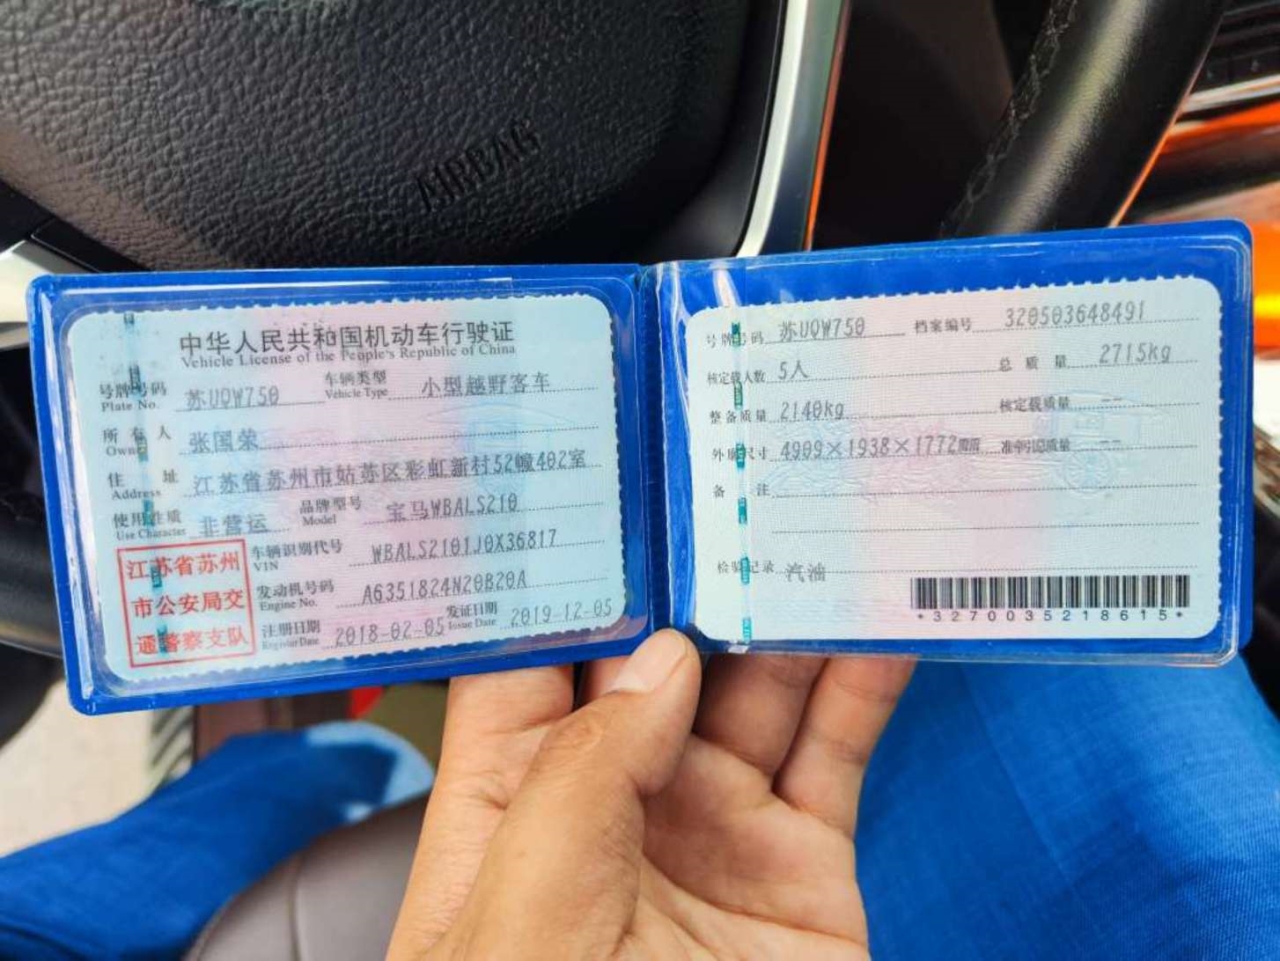 AIRBAG
中华人民共和国机动车行驶证
Vehicle License of the People's Republic of China
号牌号码 Plate No. 苏UQW750 车辆类型 Vehicle Type 小型越野客车
所有人 Owner 张国荣
住址 Address 江苏省苏州市姑苏区彩虹新村52幢402室
使用性质 Use Character 非营运 品牌型号 Model 宝马WBALS210
车辆识别代号 VIN WBALS2101J0X36817
发动机号码 Engine No. A6351824N20B20A
注册日期 Register Date 2018-02-05 发证日期 Issue Date 2019-12-05
江苏省苏州
市公安局交
通警察支队
号牌号码 苏UQW750 档案编号 320503648491
核定载人数 5人 总质量 2715kg
整备质量 2140kg 核定载质量 --
外廓尺寸 4909×1938×1772mm 准牵引总质量 --
备注
检验记录 汽油
*3270035218615*